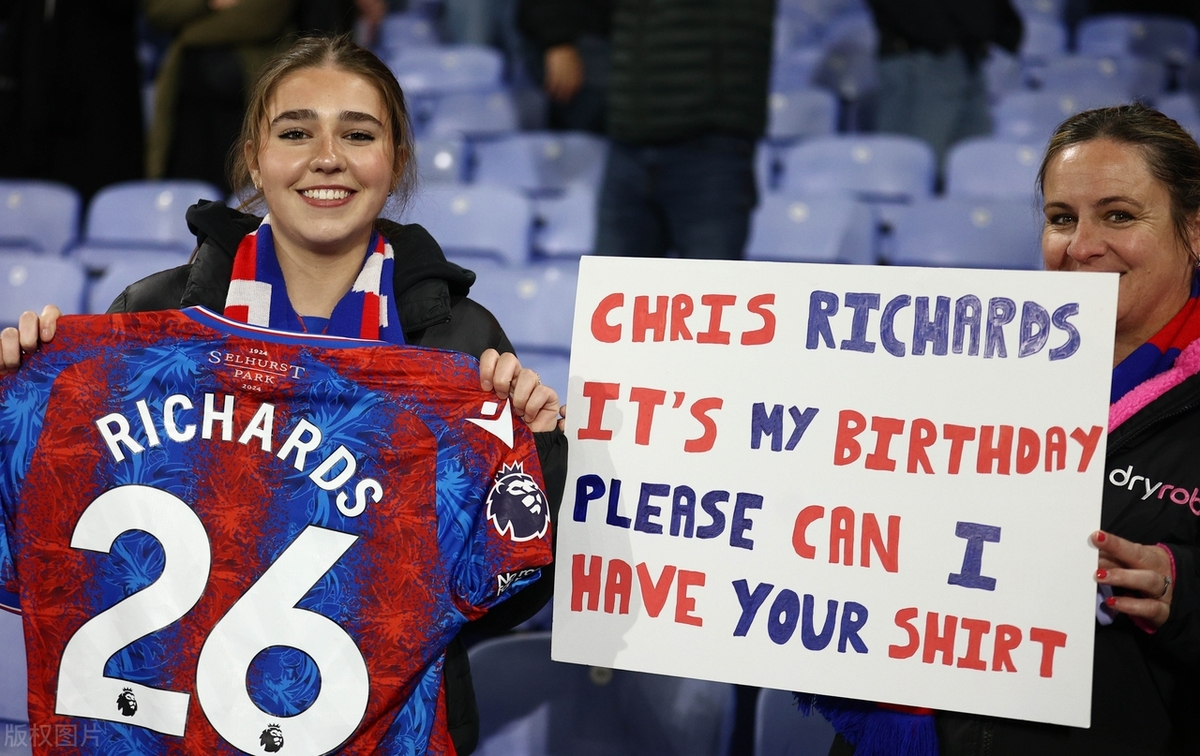 1924
SELHURST
PARK
2024
RICHARDS
26
CHRIS RICHARDS
IT'S MY BIRTHDAY
PLEASE CAN I
HAVE YOUR SHIRT
版权图片